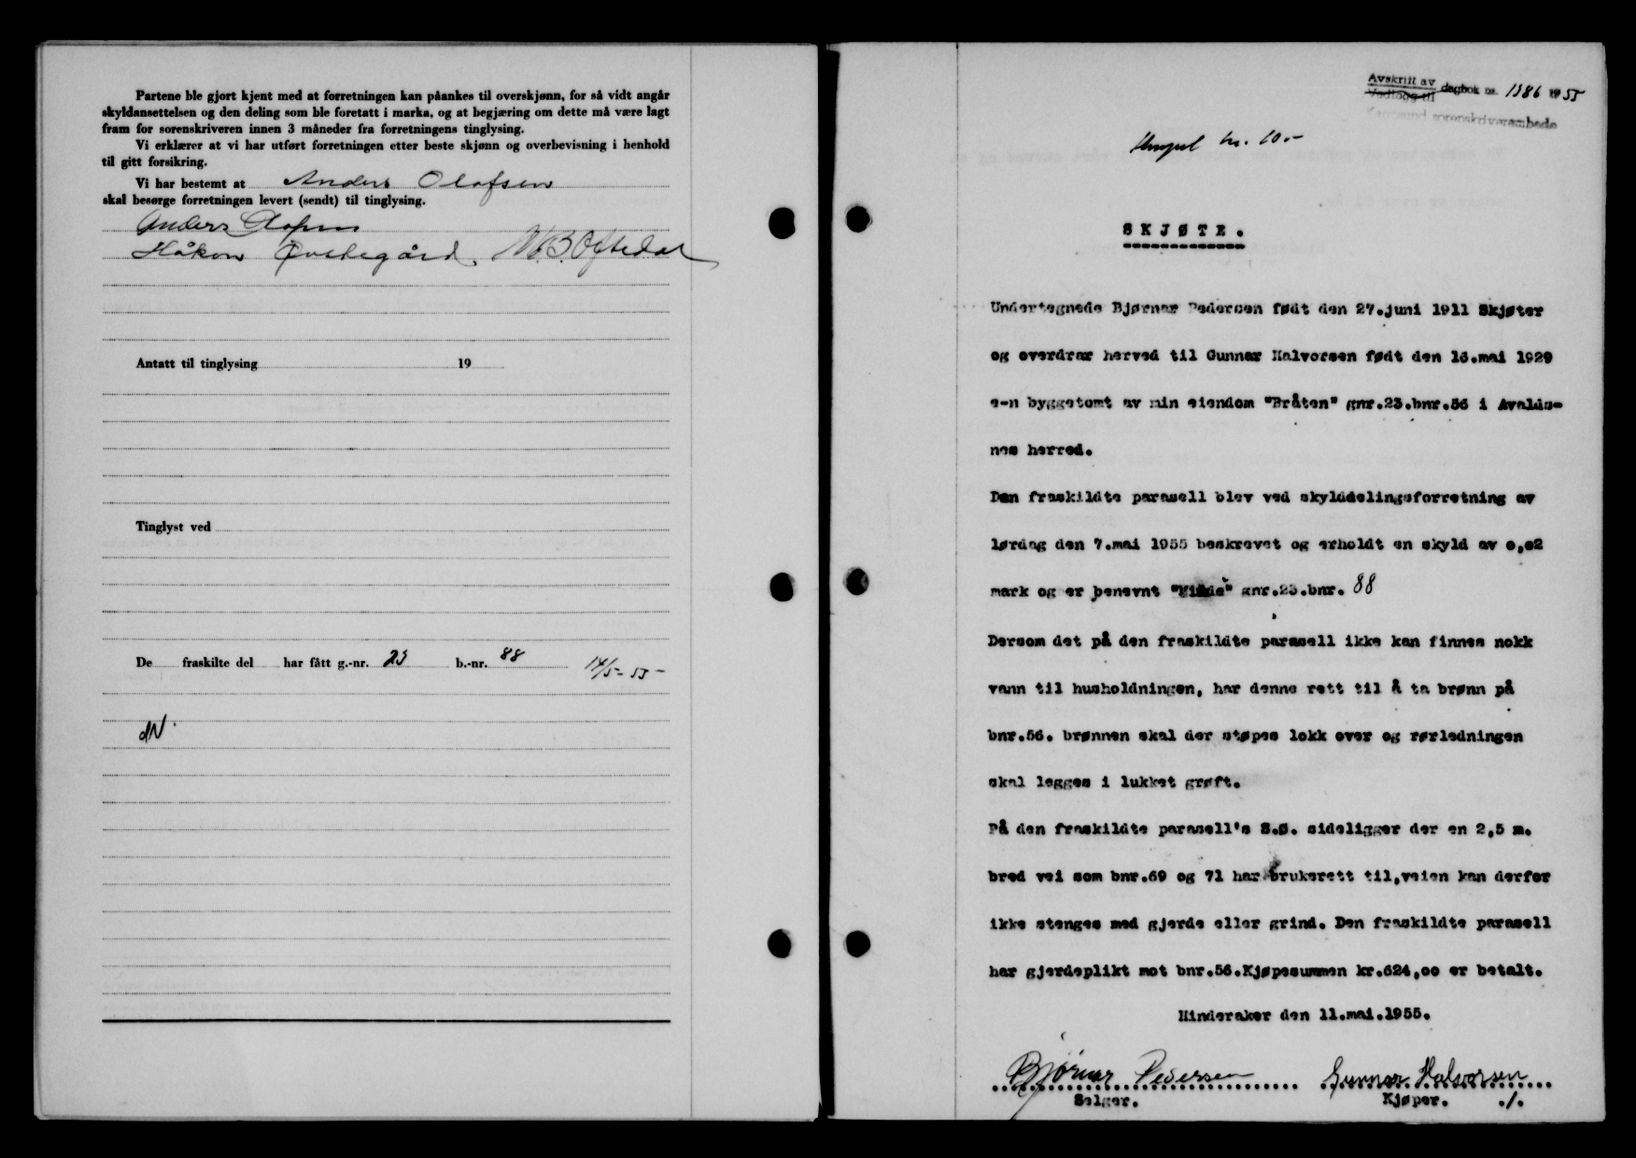 Partene ble gjort kjent med at forretningen kan påankes til overskjønn, for så vidt angår
skyldansettelsen og den deling som ble foretatt i marka, og at begjæring om dette må være lagt
fram for sorenskriveren innen 3 måneder fra forretningens tinglysing.
Vi erklærer at vi har utført forretningen etter beste skjønn og overbevisning i henhold
til gitt forsikring.
Vi har bestemt at Anders Olafsen
skal besørge forretningen levert (sendt) til tinglysing.
Anders Olafsen
Håkon Østhegård. N.B. Oftedal
Antatt til tinglysing 19
Tinglyst ved
De fraskilte del har fått g.-nr. 23 b.-nr. 88 14/5-55-
dN.
Avskrift av
Vedlegg til dagbok nr. 1386 1955
sorenskriverembede
Stempel kr. 10.-
SKJØTE.
Undertegnede Bjørnar Pedersen født den 27.juni 1911 Skjøter
og overdrar herved til Gunnar Halvorsen født den 16.mai 1929
e-n byggetomt av min eiendom "Bråten" gnr.23.bnr.56 i Avalds-
nes herred.
Den fraskildte parasell blev ved skylddelingsforretning av
lørdag den 7.mai 1955 beskrevet og erholdt en skyld av o,o2
mark og er benevnt gnr.23.bnr. 88
Dersom det på den fraskildte parasell ikke kan finnes nokk
vann til husholdningen, har denne rett til å ta brønn på
bnr.56. brønnen skal der støpes lokk over og rørledningen
skal legges i lukket grøft.
På den fraskildte parasell's S.Ø. sideligger der en 2,5 m.
bred vei som bnr.69 og 71 har bruksrett til,veien kan derfor
ikke stenges med gjerde eller grind. Den fraskildte parasell
har gjerdeplikt mot bnr.56.Kjøpesummen kr.624,oo er betalt.
Hinderaker den 11.mai.1955.
Bjørnar Pedersen Gunnar Halvorsen
Selger. Kjøper. ./.